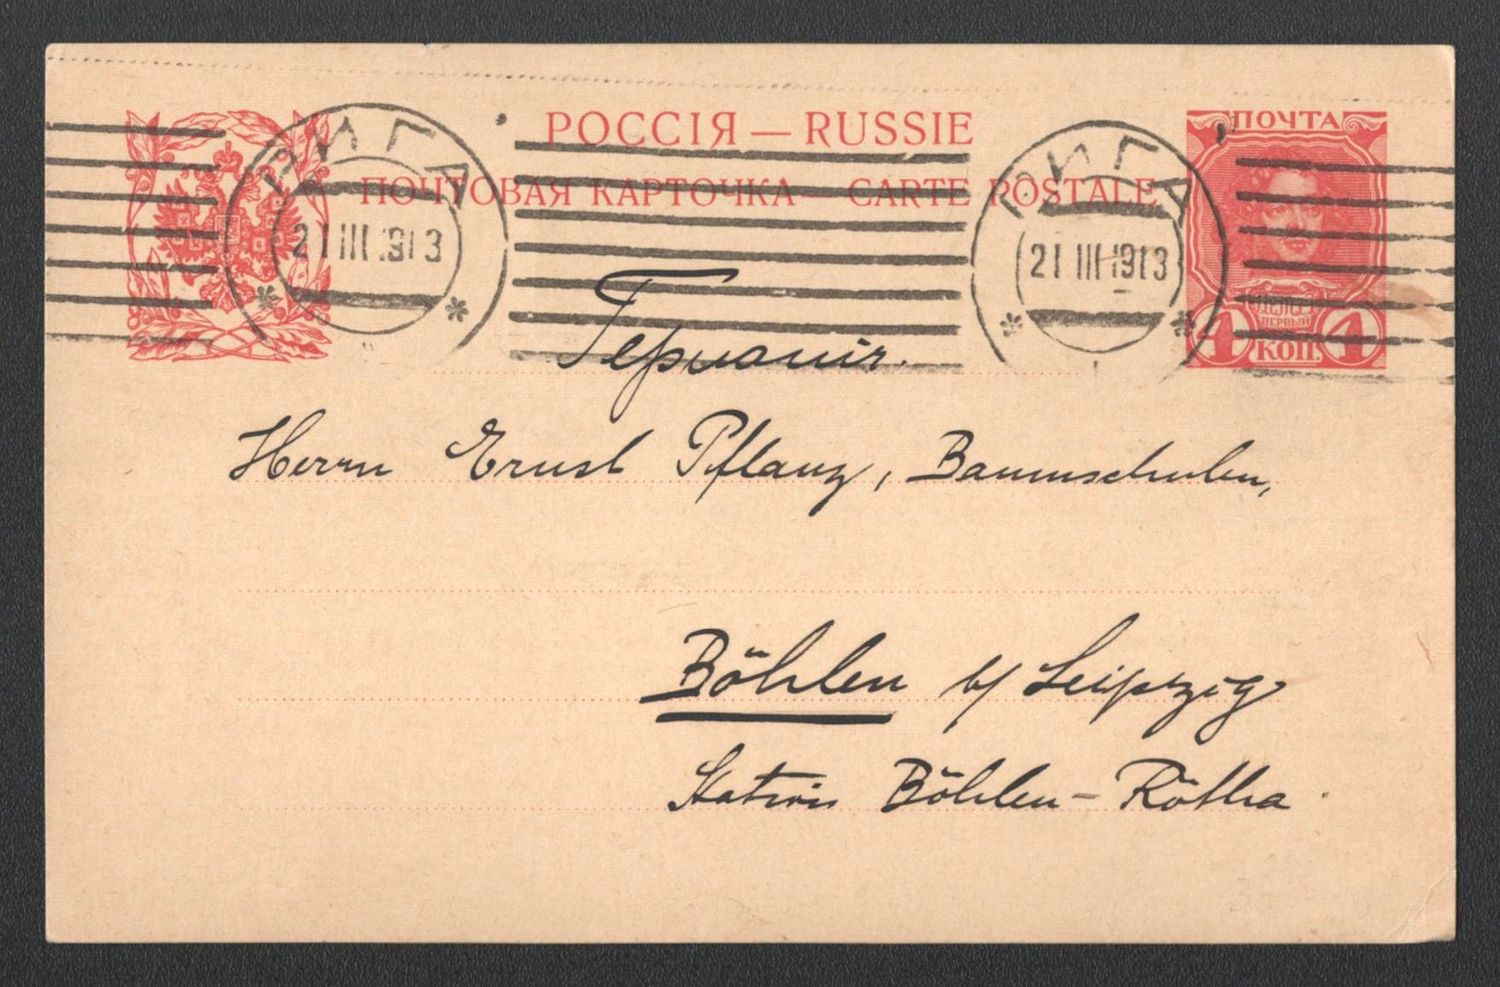 РОССІЯ — RUSSIE
ПОЧТОВАЯ КАРТОЧКА — CARTE POSTALE
РИГА
21 III 1913
РИГА
21 III 1913
ПОЧТА
ПЕТРЪ
ПЕРВЫЙ
4 КОП. 4
Германія.
Herrn Ernst Pflanz, Baumschulen,
Böhlen b/ Leipzig
Station Böhlen-Rötha